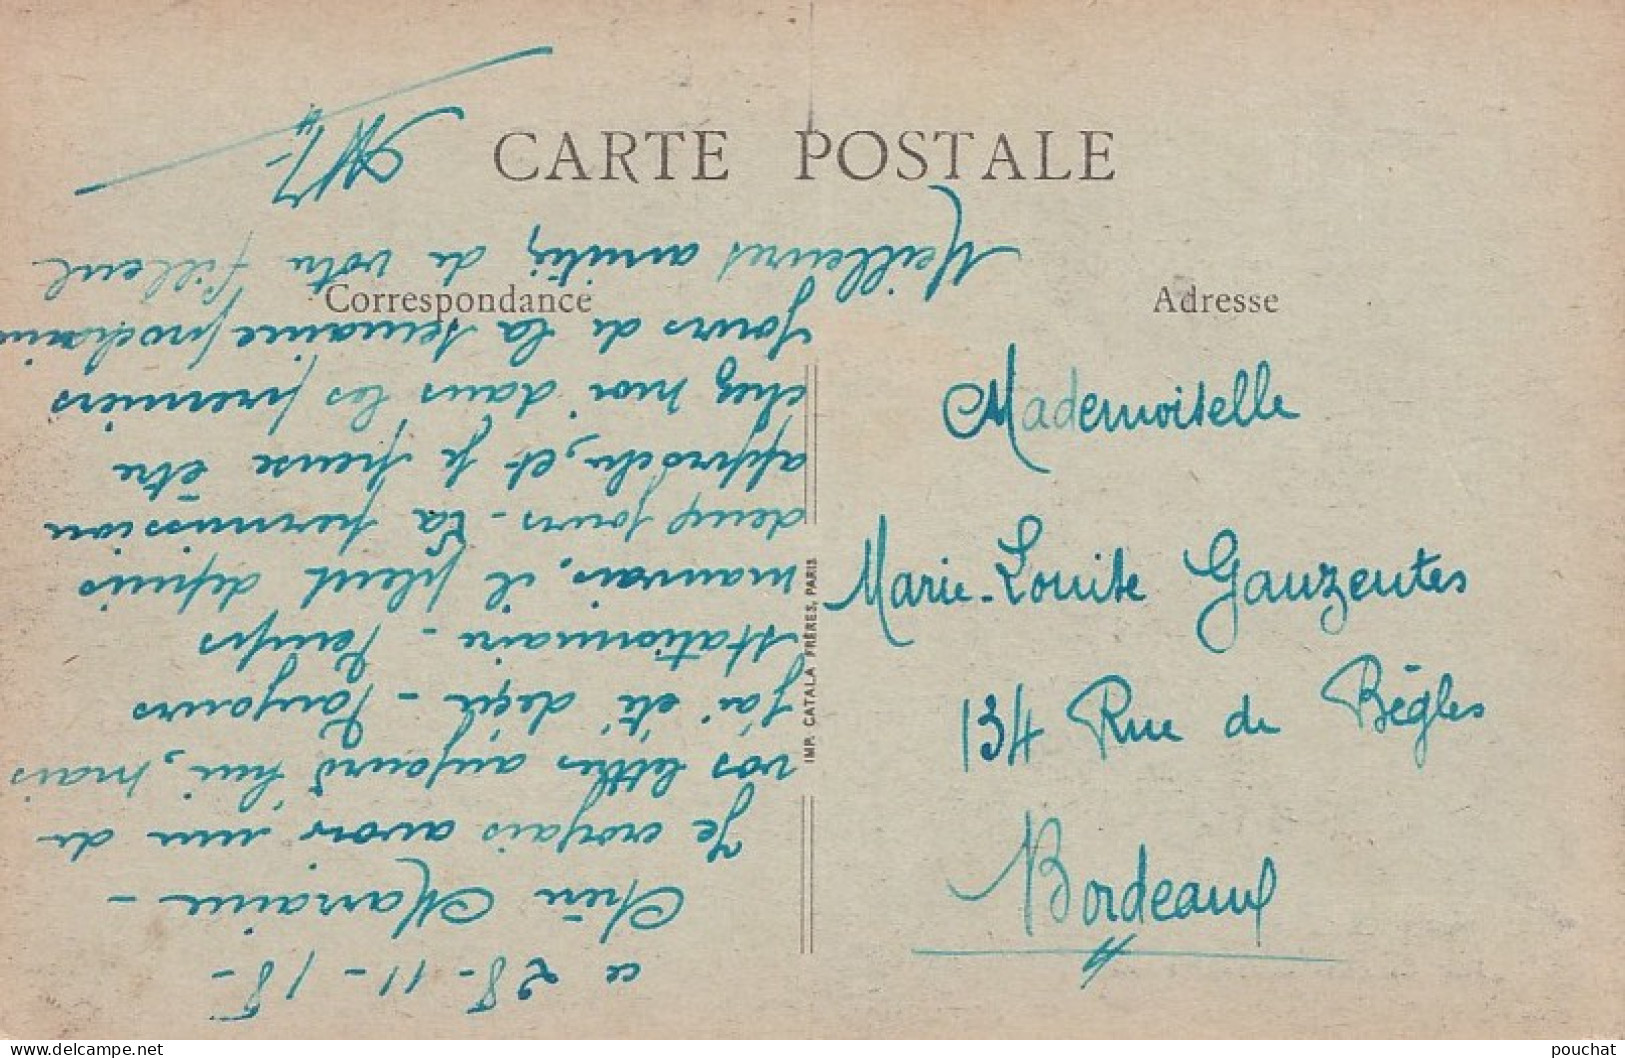 CARTE POSTALE
Correspondance
Adresse
ce 28-11-18-
Chère Marraine -
Je croyais avoir une de
vos lettres aujourd'hui, mais
j'ai été déçu - Toujours
stationnaire - Temps
mauvais, il pleut depuis
deux jours - La permission
approche, et je pense être
chez moi dans les premiers
jours de la semaine prochaine
Meilleures amitiés de votre filleul
Mademoiselle
Marie-Louise Gauzentes
134 Rue de Bègles
Bordeaux
IMP. CATALA FRÈRES, PARIS
delcampe.net
pouchat